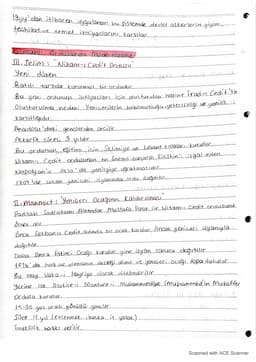 1794'dan itibaren uygulanan bu sistemde devlet askerlerin giyim,
teçhizat ve temel ihtiyaçlarını karşılar.
III. Selim: "Nizam-ı Cedit Ordusu"
Yeni düzen
Batılı tarzda kurulmuş bir ordudur.
Bu yeni ordunun ihtiyaçları için oluşturulan hazine İrad-ı Cedit'tir.
Oluşturulma nedeni Yeniçerilerin bozulmuşluğu, yetersizliği ve yeniliğe
karşılığıdır.
Anadolu'daki gençlerden seçilir.
Askerlik süresi 3 yıldır.
Bu ordunun eğitimi için Selimiye ve Levent kışlaları kurulur.
Nizam-ı Cedit ordusunun en önemli başarısı Filistin'i işgal eden
Napolyon'u Akka'da yenilgiye uğratmasıdır.
1807'de isyan yeniçeri isyanında ordu dağıtılır.
II. Mahmut: Yeniçeri Ocağının Kaldırılması
Padişah Sadrazam Alemdar Mustafa Paşa ile Nizam-ı Cedit ordusunun
Önce Sekban-ı Cedit adında bir ocak kurulur. Ancak yeniçeri isyanıyla
dağıtılır.
Daha sonra Eşkinci Ocağı kurulur, yine isyan sonucu dağıtılır.
1826'da halk ve ulemanın desteği alınır ve yeniçeri ocağı kapatılır.
Bu olay Vaka-i Hayriye olarak adlandırılır.
Yerine ise Asakir-i Mansure-i Muhammediye (Muhammed'in Muzaffer
Ordusu) kurulur.
15-30 yaş arası gönüllü gençler
Süre 12 yıl
Scanned with ACE Scanner